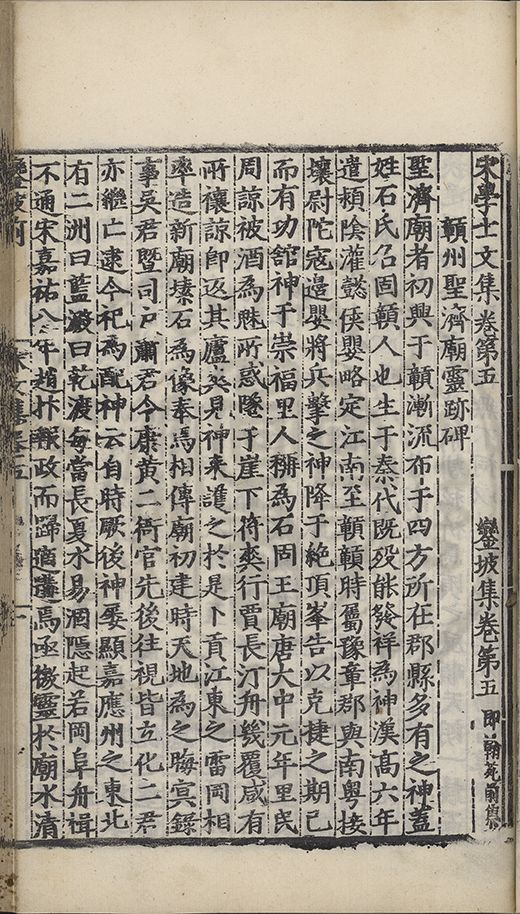 宋學士文集卷第五　鑾坡集卷第五 即翰苑前集
贑州聖濟廟靈跡碑
聖濟廟者初興于贑漸流布于四方所在郡縣多有之神蓋
姓石氏名固贑人也生于秦代既歿能發祥爲神漢高六年
遣潁陰灌懿侯嬰略定江南至贑贑時屬豫章郡與南粤接
壤尉陀寇邉嬰將兵擊之神降于絶頂峯告以克捷之期已
而有功舘神于崇福里人稱爲石固王廟唐大中元年里民
周諒被酒爲魅所惑隱于崖下符爽行賈長汀舟幾覆咸有
所禳諒即返其廬爽見神來護之於是卜貢江東之雷岡相
率造新廟𡐛石爲像奉焉相傳廟初建時天地爲之晦冥録
事吳君暨司戶蕭君令康黄二衙官先後往視皆立化二君
亦繼亡逮今祀爲配神云自時厥後神屢顯嘉應州之東北
有二洲曰藍澱曰乾渡每當長夏水易涸隱起若岡阜舟楫
不通宋嘉祐八年趙抃報政而歸適𨗇焉亟徼靈於廟水清